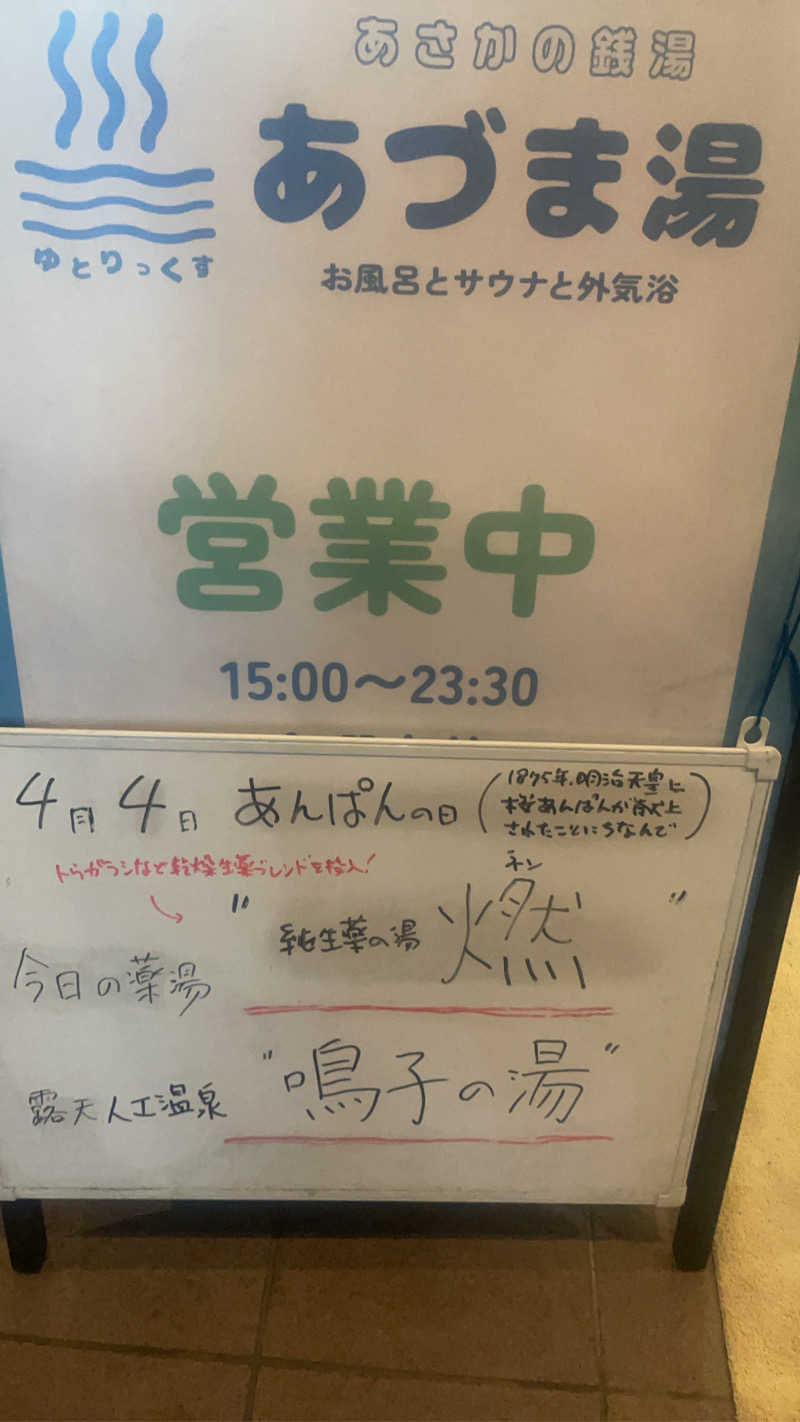 あさかの銭湯
あづま湯
ゆとりっくす
お風呂とサウナと外気浴
営業中
15:00〜23:30
4月4日 あんぱんの日
(1875年、明治天皇に
桜あんぱんが献上
されたことにちなんで)
トウガラシなど乾燥生薬ブレンドを投入!
ネン
今日の薬湯 "純生薬の湯 燃"
露天人工温泉 "鳴子の湯"